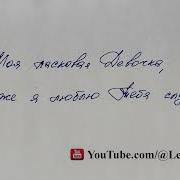 Моя ласковая Девочка,
же я люблю Тебя
YouTube.com/@Le